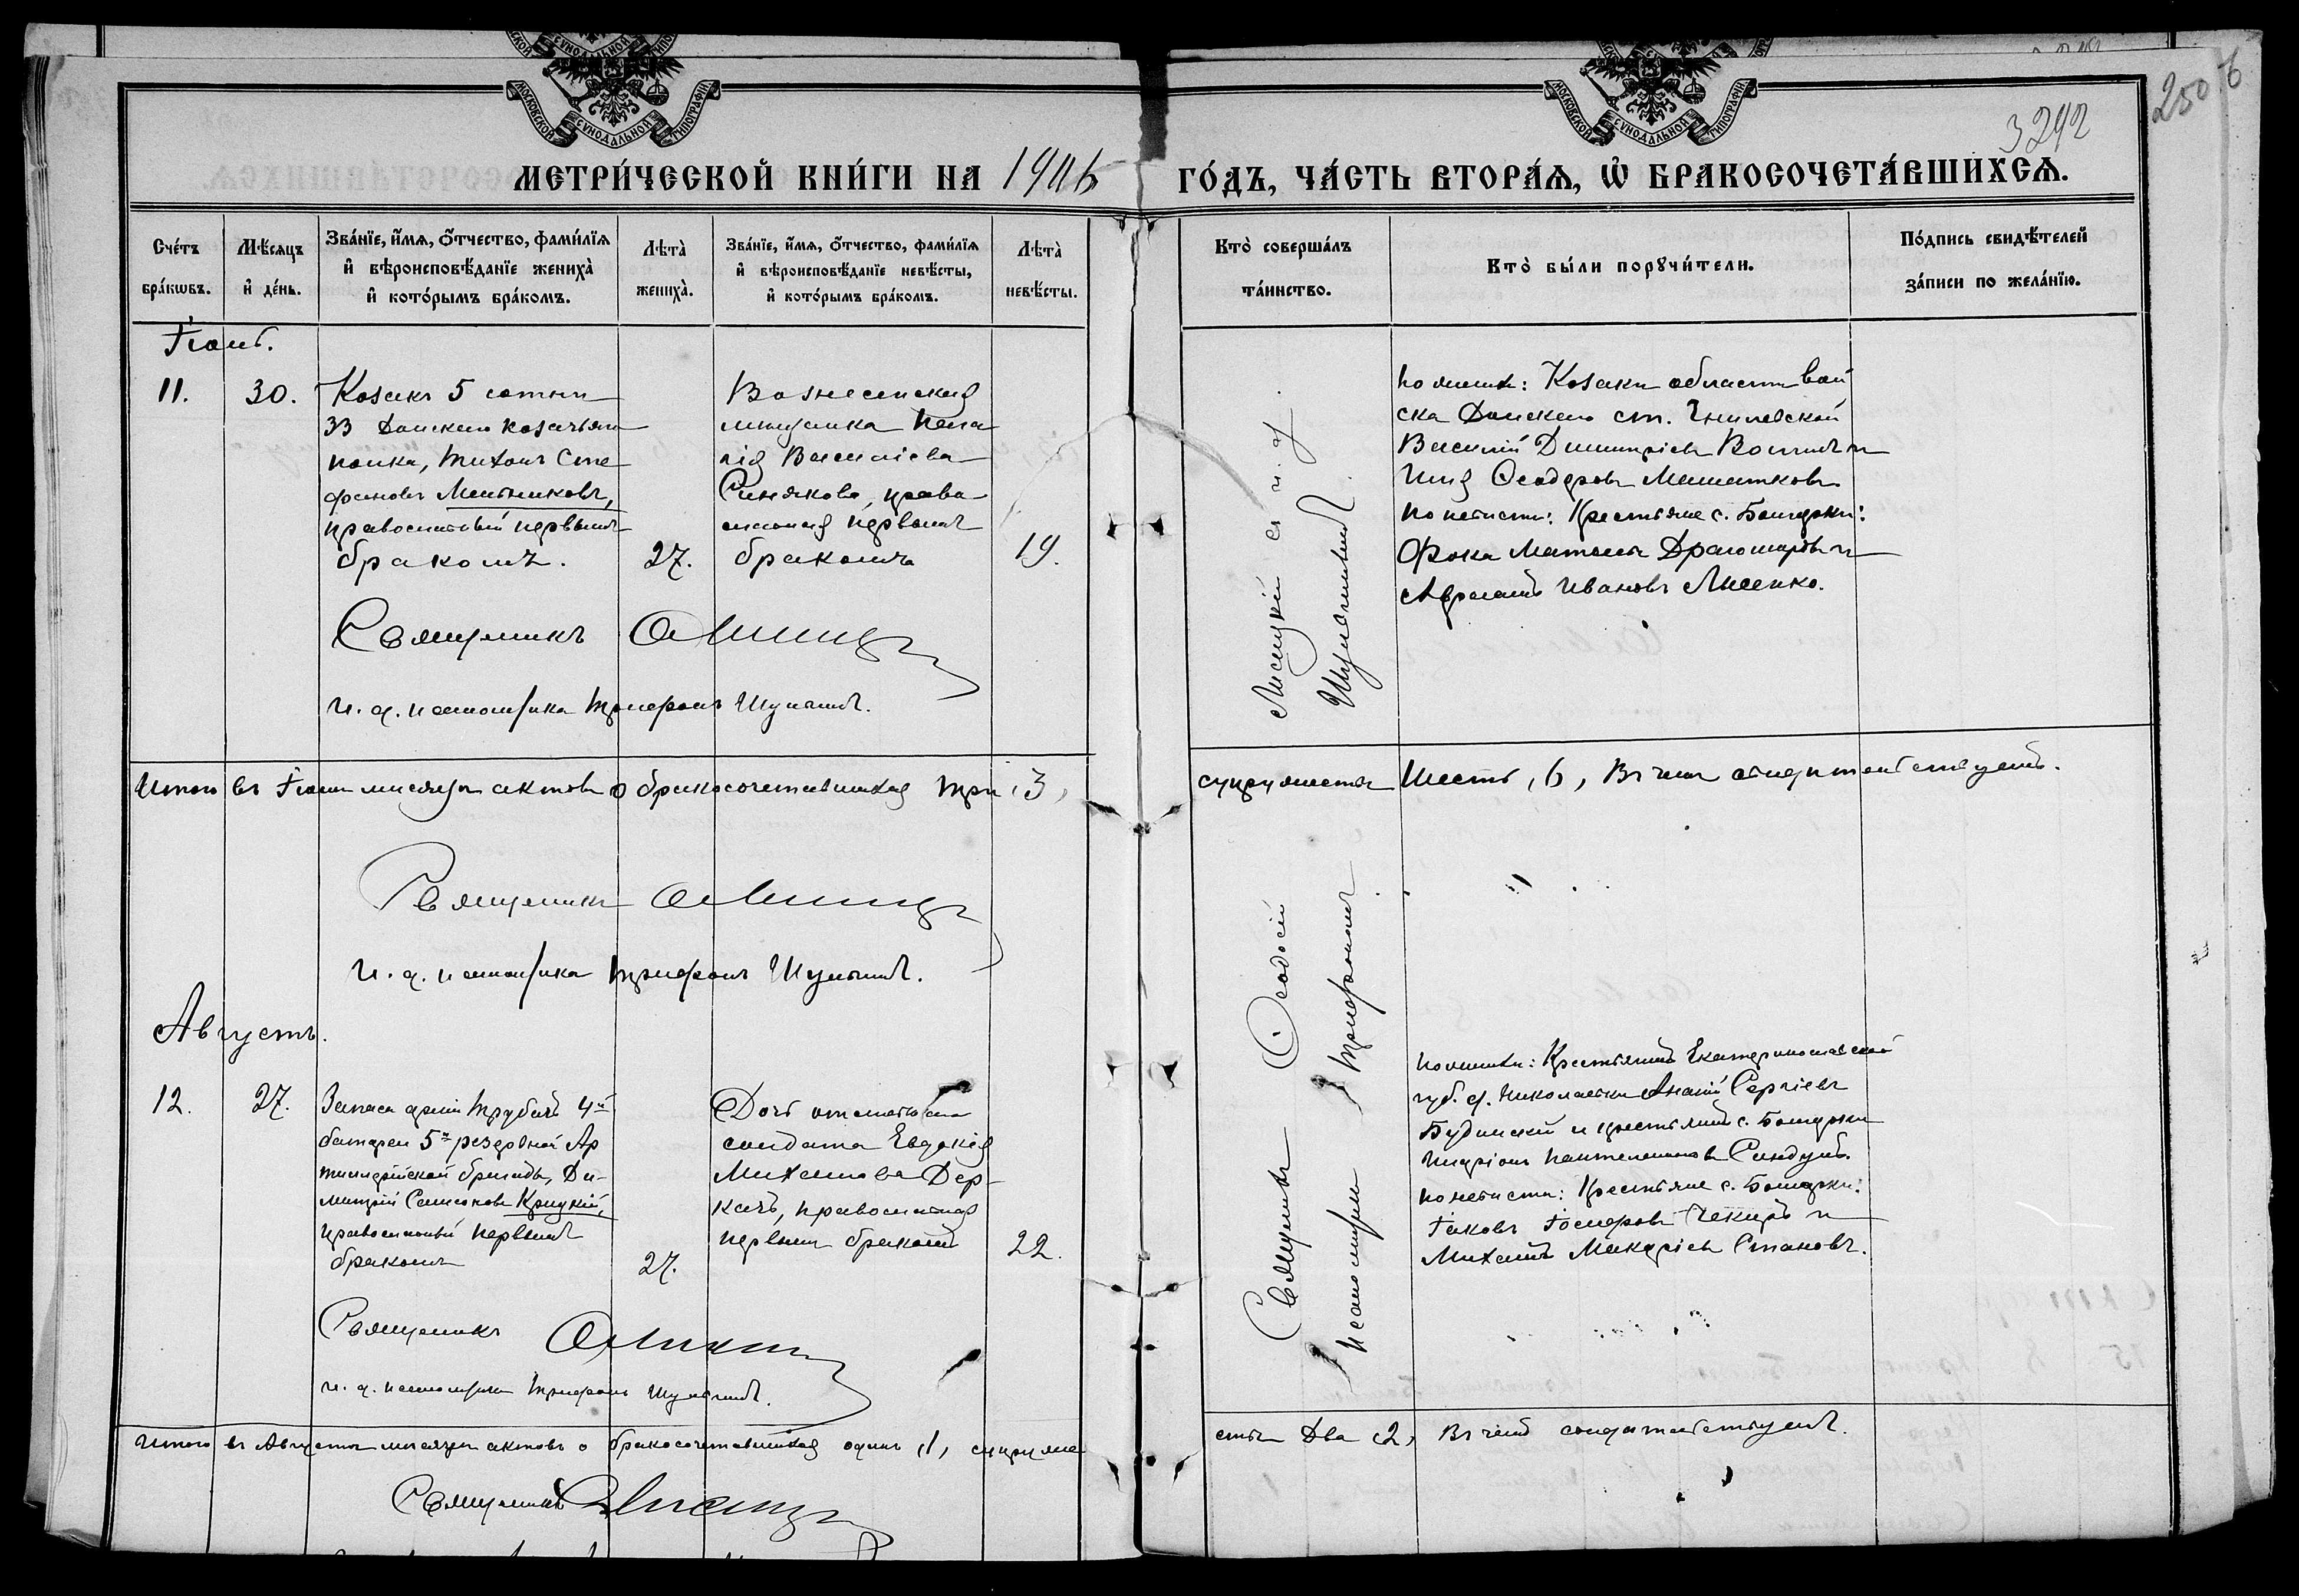 МОСКОВСКОЙ СУНОДАЛЬНОЙ ТИПОГРАФІИ
МОСКОВСКОЙ СУНОДАЛЬНОЙ ТИПОГРАФІИ
250
3292
МЕТРИ́ЧЕСКОЙ КНИ́ГИ НА 1906
ГО́ДЪ, ЧА́СТЬ ВТОРА́Ѧ, Ѡ БРАКОСОЧЕТА́ВШИХСѦ.
Сче́тъ бра́кѡвъ.
Мѣ́сяцъ и де́нь.
Зва́нїе, и́мѧ, ѻ́тчество, фами́лїѧ
и҆ вѣроисповѣ́данїе жениха̀
и҆ кото́рымъ бра́комъ.
Лѣта̀ жениха̀.
Зва́нїе, и́мѧ, ѻ́тчество, фами́лїѧ
и҆ вѣроисповѣ́данїе невѣ́сты,
и҆ кото́рымъ бра́комъ.
Лѣта̀ невѣ́сты.
Кто̀ соверша́лъ
та́инство.
Кто̀ бы́ли порꙋчи́тели.
По́дпись свидѣ́телей
за́писи по жела́нїю.
11.
30.
Козакъ 5 сотни
33 Донскаго козачьяго
полка, Тихонъ Сте
фановъ Мельниковъ,
православный первымъ
бракомъ.
27.
Вознесенская
мещанка Пела
гія Васильева
Синякова, право
славная первымъ
бракомъ
19.
По женихѣ: Козаки области Вой
ска Донскаго ст. Гниловской
Василій Димитріевъ и
Илія Ѳеодоровъ
По невѣстѣ: Крестьяне с. Болгарки:
Фока Матвеевъ Драгомаровъ и
Авраамъ Ивановъ Лисенко.
Священникъ
и. д. псаломщика Трифонъ
Итого въ Іюлѣ мѣсяцѣ актовъ о бракосочетавшихся три, 3,
супружества Шесть, 6, Въ чемъ свидѣтельствуемъ.
Священникъ
и. д. псаломщика Трифонъ
Священникъ Ѳеодосій
Псаломщикъ Трифонъ
Августъ.
12.
27.
Запаса арміи Трубачъ 4й
батареи 5й резервной Ар
тиллерійской бригады, Ди-
митрій Самсоновъ Крицкій,
православный первымъ
бракомъ
27.
Дочь отставного
солдата Евдокія
Михаилова Дер-
качъ, православная
первымъ бракомъ
22.
По женихѣ: Крестьянинъ Екатеринославской
губ. д. Николаевки Ананій Сергіевъ
Будинскій и крестьянинъ с. Болгарки
Иларіонъ Пантелеимоновъ
По невѣстѣ: Крестьяне с. Болгарки:
Іаковъ Іосифовъ Чекиръ и
Михаилъ Макаріевъ Становъ.
Священникъ
и. д. псаломщика Трифонъ
Итого въ Августѣ мѣсяцѣ актовъ о бракосочетавшихся одинъ, 1, супруже
ства Два, 2, Въ чемъ свидѣтельствуемъ.
Священникъ